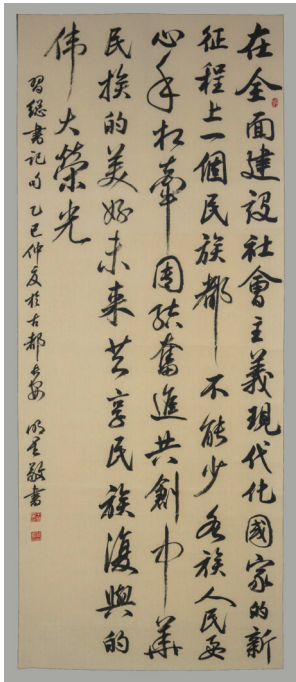 在全面建設社會主義現代化國家的新
征程上一個民族都不能少各族人民要
心手相牽團結奮進共創中華
民族的美好未来共享民族復興的
伟大榮光
習總書記句乙巳仲夏於古都長安明星敬書